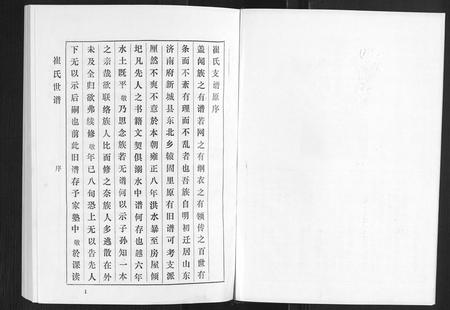 崔氏支谱原序
盖闻族之有谱若网之有纲衣之有领传之百世有
条而不紊有理而不乱者也吾族自明初迁居山东
济南府新城县东北乡辕固里原有旧谱可考支派
厘然不爽不意於本朝雍正八年洪水暴至房屋倾
圯凡先人之书籍文契俱溺水中谱何存也越六年
水土既平敬乃思念族若无谱何以示子孙知一本
之亲哉欲联络族人比而修之奈族人多逃散在外
未及全归欲弗续修敬年已八旬恐上无以告先人
下无以示后嗣也前此旧谱存予家塾中敬於课读
崔氏世谱
序
1